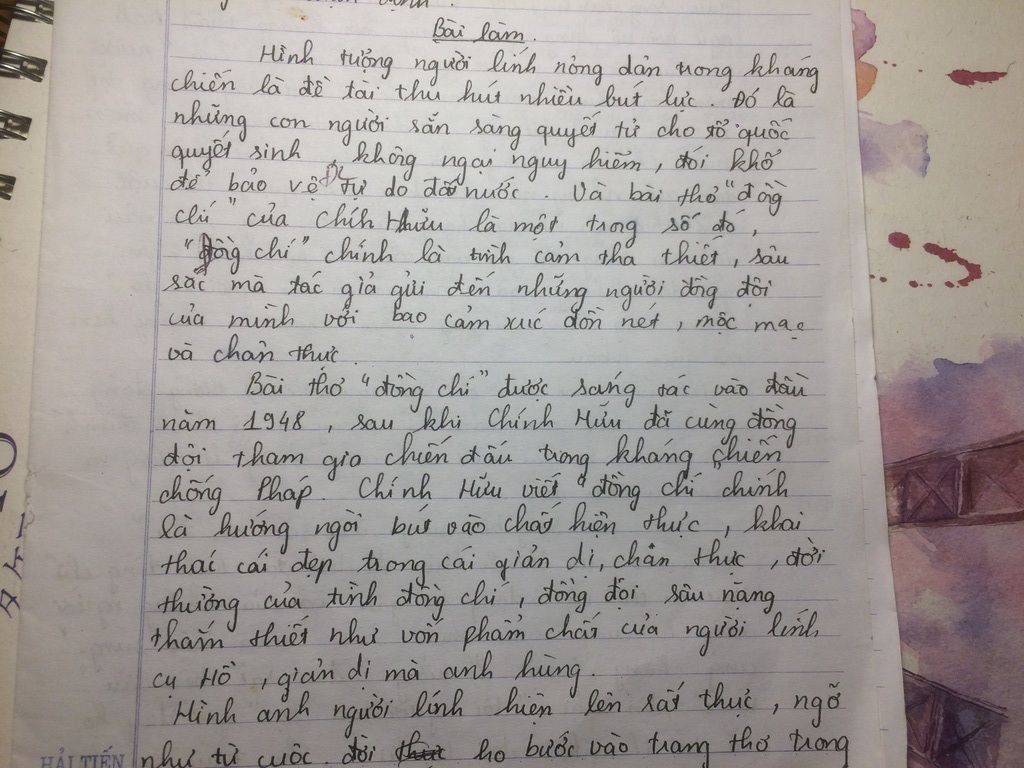 Bài làm.
Hình tượng người lính nông dân trong kháng
chiến là đề tài thu hút nhiều bút lực. Đó là
những con người sẵn sàng quyết tử cho tổ quốc
quyết sinh, không ngại nguy hiểm, đói khổ
để bảo vệ tự do đất nước. Và bài thơ "đồng
chí" của Chính Hữu là một trong số đó,
"đồng chí" chính là tình cảm tha thiết, sâu
sắc mà tác giả gửi đến những người đồng đội
của mình với bao cảm xúc dồn nét, mộc mạc
và chân thực.
Bài thơ "đồng chí" được sáng tác vào đầu
năm 1948, sau khi Chính Hữu đã cùng đồng
đội tham gia chiến đấu trong kháng chiến
chống Pháp. Chính Hữu viết "đồng chí" chính
là hướng ngòi bút vào chất hiện thực, khai
thác cái đẹp trong cái giản dị, chân thực, đời
thường của tình đồng chí, đồng đội sâu nặng
thắm thiết như vốn phẩm chất của người lính
cụ Hồ, giản dị mà anh hùng.
Hình ảnh người lính hiện lên rất thực, ngỡ
như từ cuộc đời họ bước vào trang thơ trong
HẢI TIẾN